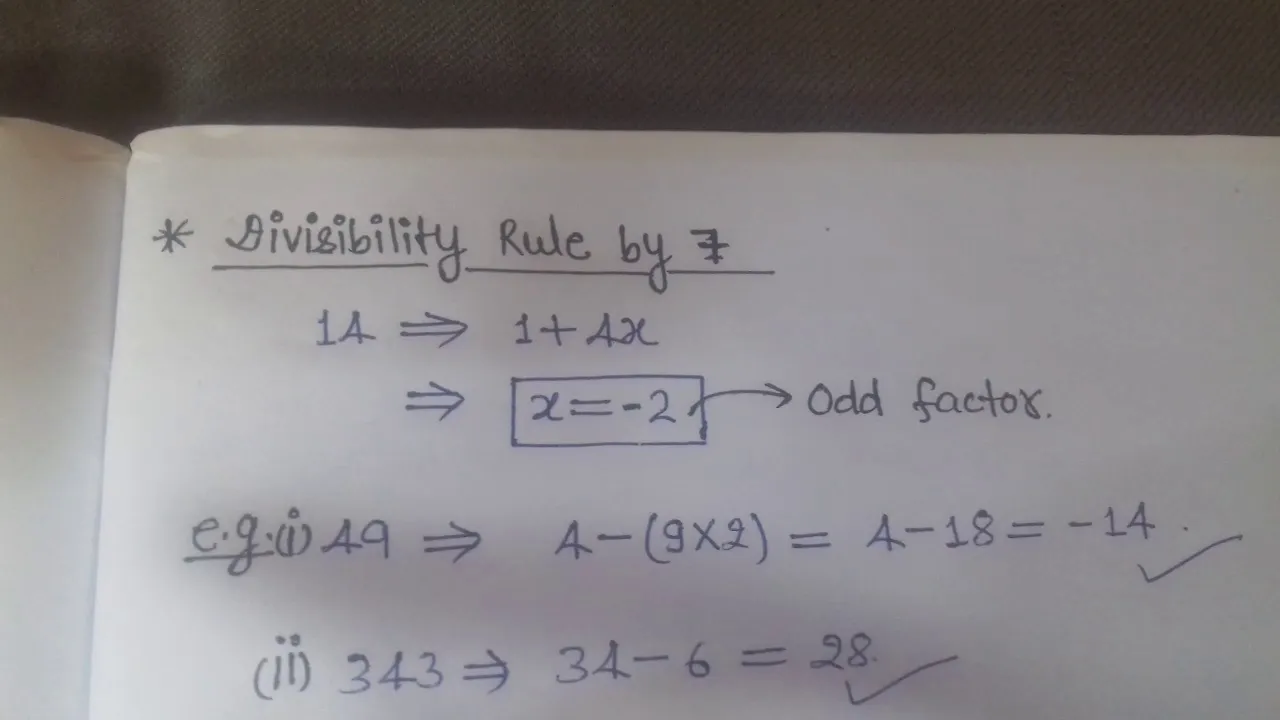 * Divisibility Rule by 7
14 ⇒ 1+4x
⇒ x=-2 → Odd factor.
e.g.(i) 49 ⇒ 4-(9×2) = 4-18 = -14.
(ii) 343 ⇒ 34-6 = 28.